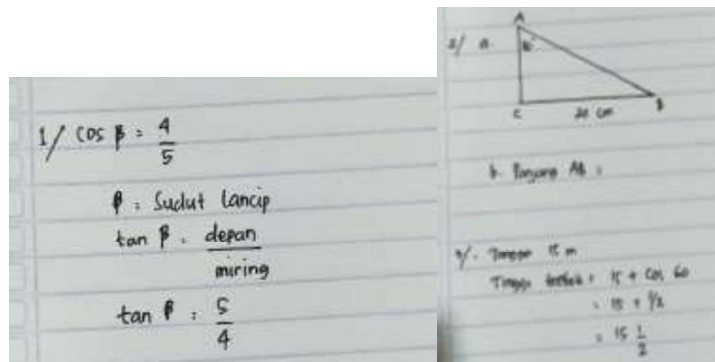 1/ cos β = 4/5
β = Sudut lancip
tan β = depan/miring
tan β = 5/4
2/ a.
A
C
20 cm
B
b. Panjang AB =
Tangga 15 m
Tinggi = 15 + cos 60
= 15 + 1/2
= 15 1/2